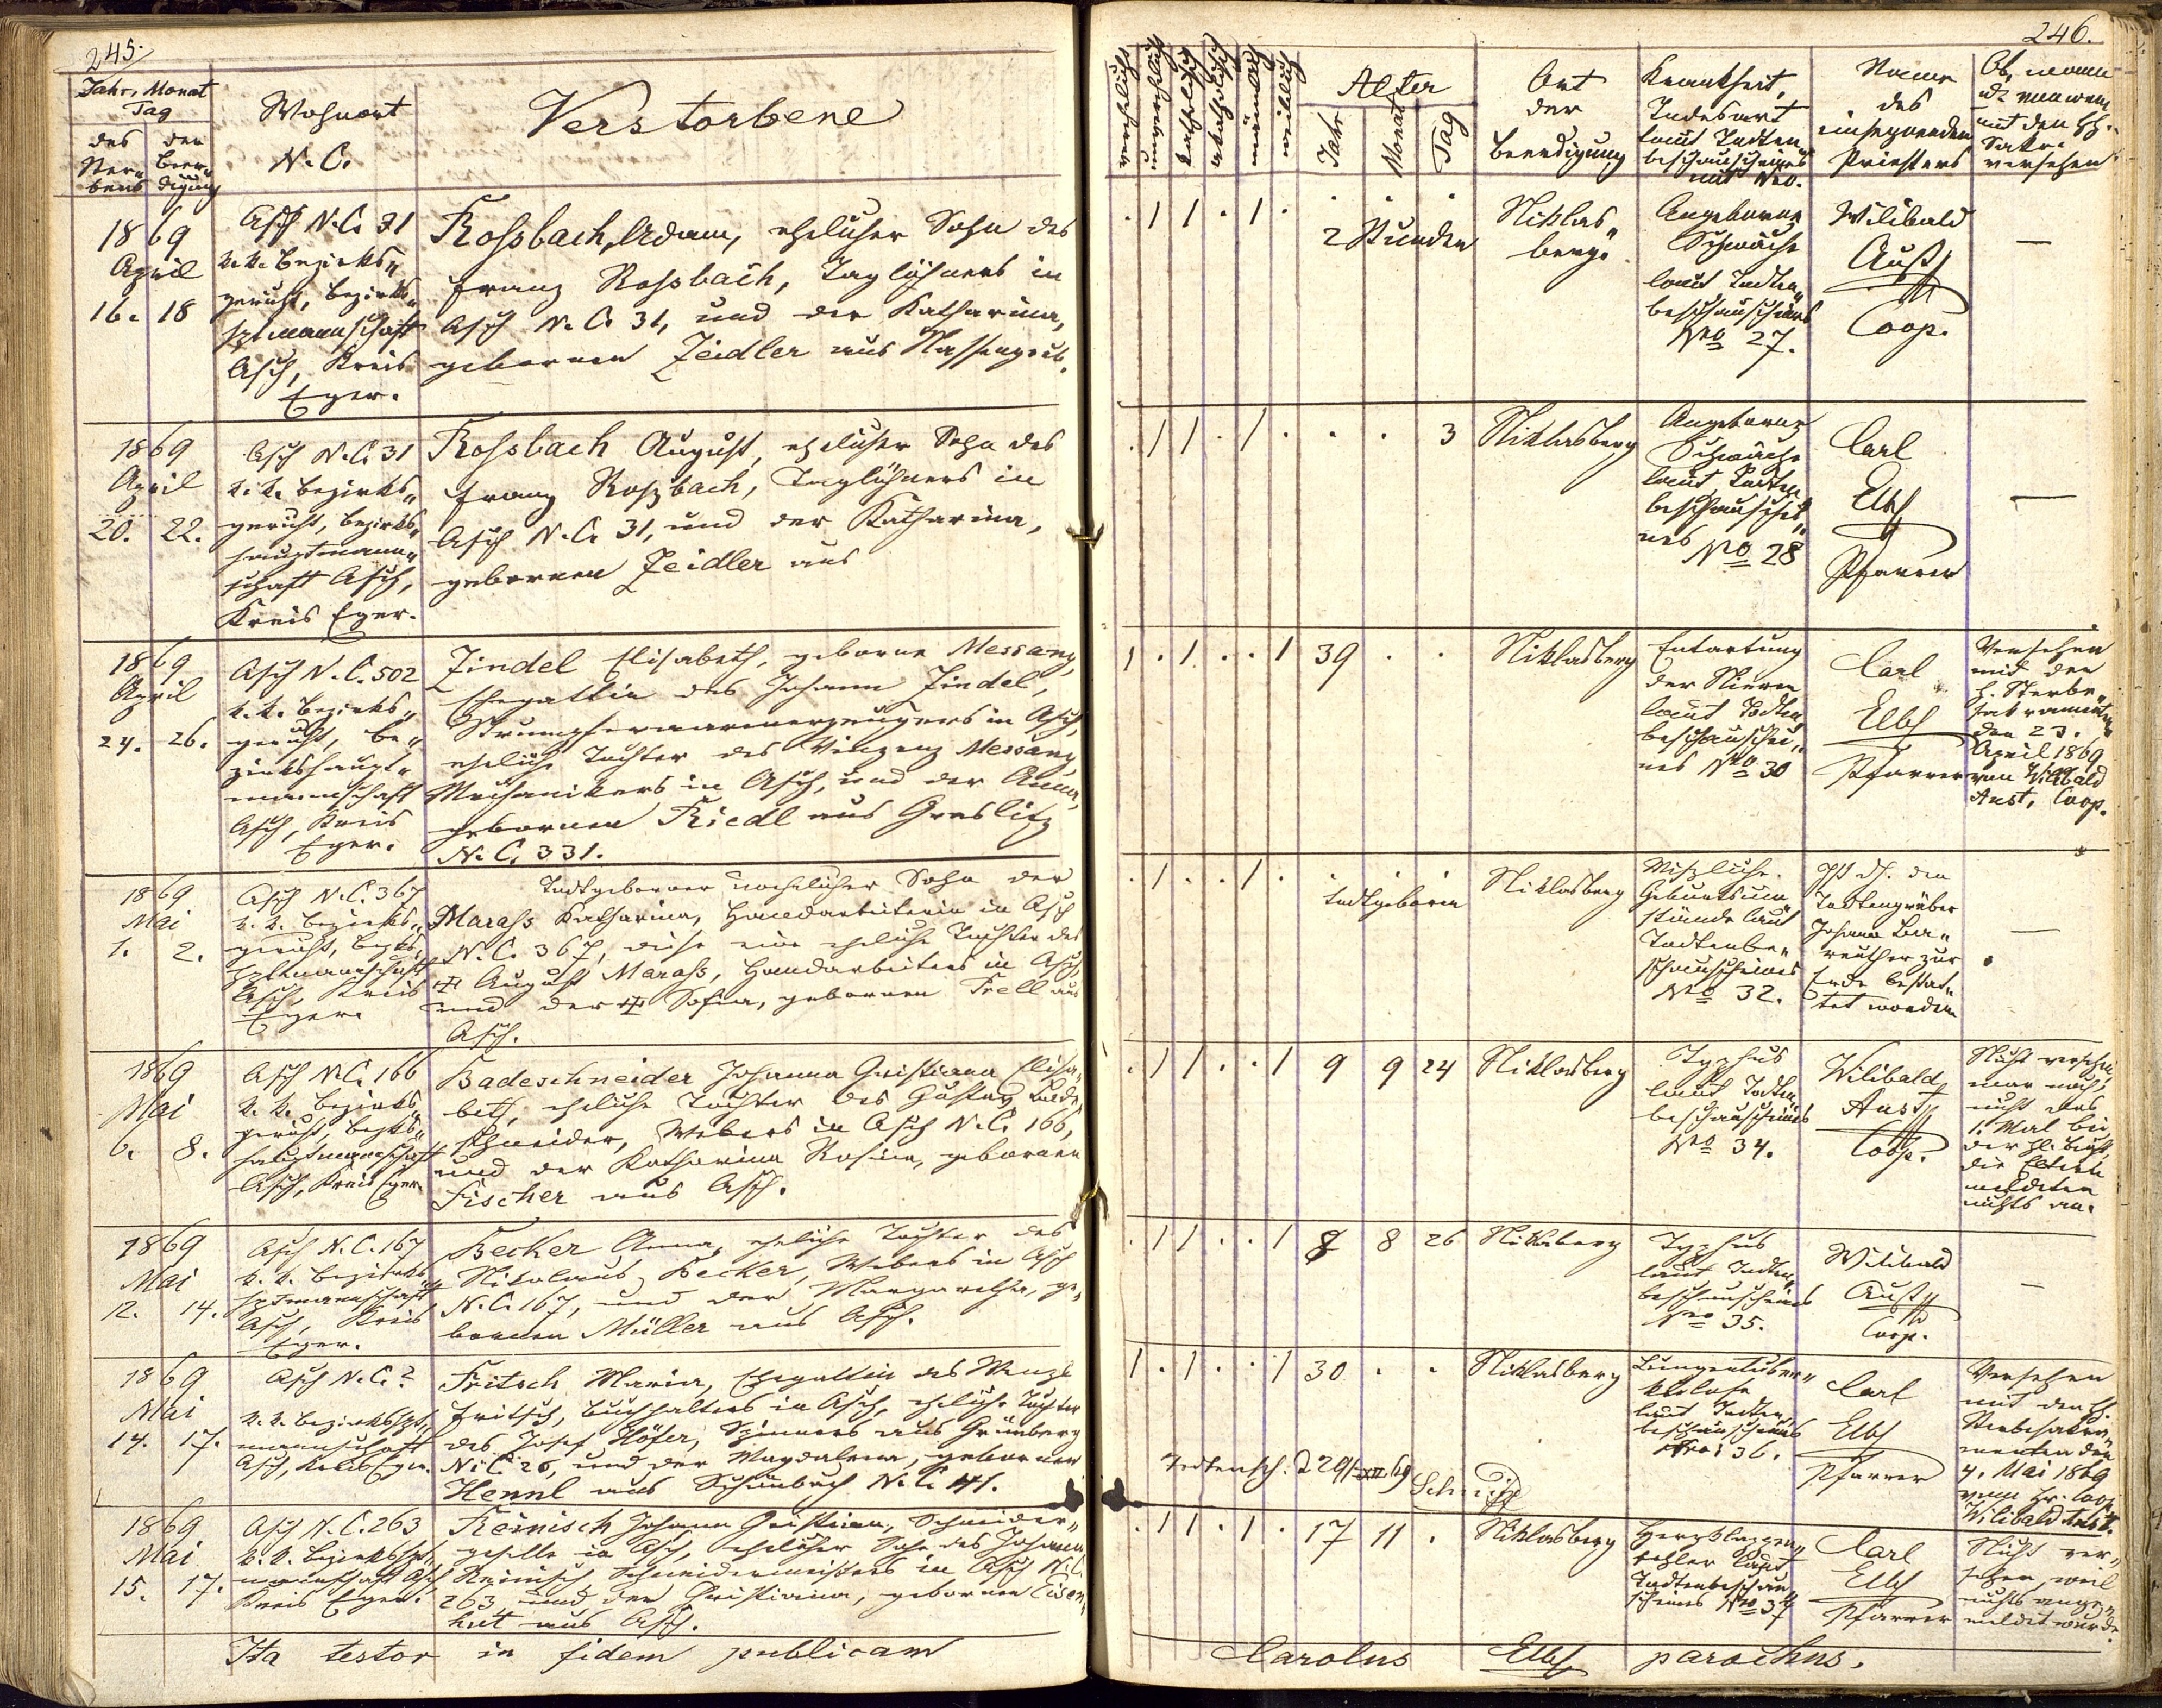 245.
Jahr, Monat
Tag
des Ster-
bens
der Beer-
digung
Wohnort
N. C.
Verstorbene
1869
April
16. 18
Asch N. C. 31
k. k. Bezirks-
gericht, Bezirks-
hptmannschaft
Asch, Kreis
Eger.
Rossbach, Adam, ehelicher Sohn des
Franz Rossbach, Taglöhners in
Asch N. C. 31, und der Katharina,
gebornen Zeidler aus Nassengrub.
1869
April
20. 22.
Asch N. C. 31
k. k. Bezirks-
gericht, Bezirks-
hauptmann-
schaft Asch,
Kreis Eger.
Rossbach August, ehelicher Sohn des
Franz Roßbach, Taglöhners in
Asch N. C. 31, und der Katharina,
gebornen Zeidler aus
1869
April
24. 26.
Asch N. C. 502
k. k. Bezirks-
gericht, Be-
zirkshaupt-
mannschaft
Asch, Kreis
Eger.
Zindel Elisabeth, geborne Messany,
Ehegattin des Johann Zindel,
Strumpfwaarenerzeugers in Asch,
eheliche Tochter des Vinzenz Messany
Mechanikers in Asch, und der Anna,
gebornen Riedl aus Graslitz
N. C. 331.
1869
Mai
1. 2.
Asch N. C. 367
k. k. Bezirks-
gericht, Bezks-
hptmannschaft
Asch, Kreis
Eger.
Todtgeborner unehelicher Sohn der
Marass Katharina, Handarbeiterin in Asch
N. C. 367, diese eine eheliche Tochter des
August Marass, Handarbeiters in Asch,
und der Sofia, gebornen Prell aus
Asch.
1869
Mai
6. 8.
Asch N. C. 166
k. k. Bezirks-
gericht, Bezks-
hauptmannschaft
Asch, Kreis Eger.
Badeschneider Johanna Christiana Elisa-
beth, eheliche Tochter des Gustav Bade-
schneider, Webers in Asch N. C. 166,
und der Katharina Rosina, gebornen
Fischer aus Asch.
1869
Mai
12. 14.
Asch N. C. 167
k. k. Bezirks-
hptmannschaft
Asch, Kreis
Eger.
Becker Anna, eheliche Tochter des
Nikolaus Becker, Webers in Asch
N. C. 167, und der Margaretha, ge-
bornen Müller aus Asch.
1869
Mai
14. 17.
Asch N. C. ?
k. k. Bezirkshpt-
mannschaft
Asch, Kreis Eger.
Fritsch Maria, Ehegattin des Wenzl
Fritsch, Buchhalters in Asch, eheliche Tochter
des Josef Höfer, Spinners aus Grünberg
N. C. 26, und der Magdalena, gebornen
Hennl aus Schönbach N. C. 141.
1869
Mai
15. 17.
Asch N. C. 263
k. k. Bezirkshpt-
mannschaft Asch
Kreis Eger.
Reinisch Johann Christian, Schneider-
geselle in Asch, ehelicher Sohn des Johann
Reinisch Schneidermeisters in Asch N. C.
263 und der Christiana, gebornen Eisen-
hut aus Asch.
Ita testor in fidem publicam
246.
verehelicht
unverehelicht
katholisch
akatholisch
männlich
weiblich
Alter
Jahr
Monat
Tag
Ort
der
Beerdigung
Krankheit,
Todesart
laut Todten-
beschauscheines
mit Nro.
Name
des
einsegnenden
Priesters
Ob, wann
u. von wem
mit den hh.
Sakr.
versehen
1 1 1
2 Stunden
Niklas-
berg.
Angeborne
Schwäche
laut Todten-
beschauscheines
Nro 27.
Wilibald
Aust
Coop.
—
1 1 1 3
Niklasberg
Angeborne
Schwäche
laut Todten-
beschauschei-
nes
Nro 28
Carl
Elbl
Pfarrer
—
1 1 1 39
Niklasberg
Entartung
der Nieren
laut Todten-
beschauschei-
nes Nro 30
Carl
Elbl
Pfarrer
Versehen
mit den
h. Sterbe-
sakramenten
den 23.
April 1869
von Wilibald
Aust, Coop.
1 1
todtgeboren
Niklasberg
Mißliche
Geburtsum-
stände laut
Todtenbe-
schauscheines
Nro 32.
Ist dh. den
Todtengräber
Johann
zur
Erde bestat-
tet worden
—
1 1 1 9 9 24
Niklasberg
Typhus
laut Todten-
beschauscheines
Nro 34.
Wilibald
Aust
Coop.
Nicht versehen,
war noch
nicht das
1. Mal bei
der hl. Beicht,
die Eltern
meldeten
nichts an.
1 1 1 8 8 26
Niklasberg
Typhus
laut Todten-
beschauscheines
Nro 35.
Wilibald
Aust
Coop.
—
1 1 1 30
Niklasberg
Lungentuber-
kulose
laut Todten-
beschauscheines
Nro 36.
Carl
Elbl
Pfarrer
Versehen
mit den h.
Sterbesakra-
menten den
4. Mai 1869
vom Hr. Coop.
Wilibald Aust.
Todtensch.
1 1 1 17 11
Niklasberg
Herzklappen-
fehler laut
Todtenbeschau-
scheines Nro 37
Carl
Elbl
Pfarrer
Nicht ver-
sehen, weil
nichts ange-
meldet wurde.
Carolus Elbl parochus.